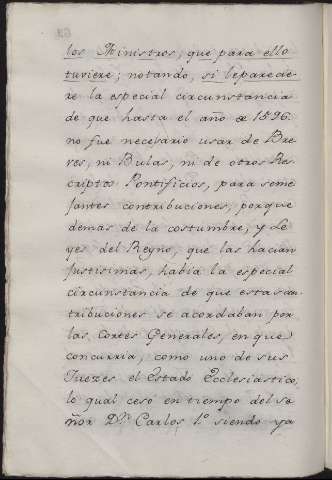 los Ministros, que para ello
tuviere; notando, si leparecie-
re la especial circunstancia
de que hasta el año de 1526.
no fue necesario usar de Bre-
ves, ni Bulas, ni de otros Res-
criptos Pontificios, para seme
jantes contribuciones, porque
demas de la costumbre, y Le-
yes del Reyno, que las hacian
justisimas, habia la especial
circunstancia de que estas con
tribuciones se acordaban por
las Cortes Generales, en que
concurria, como uno de sus
Juezes el Estado Eclesiástico,
lo qual cesó en tiempo del Se
ñor Dn. Carlos 1º siendo ya